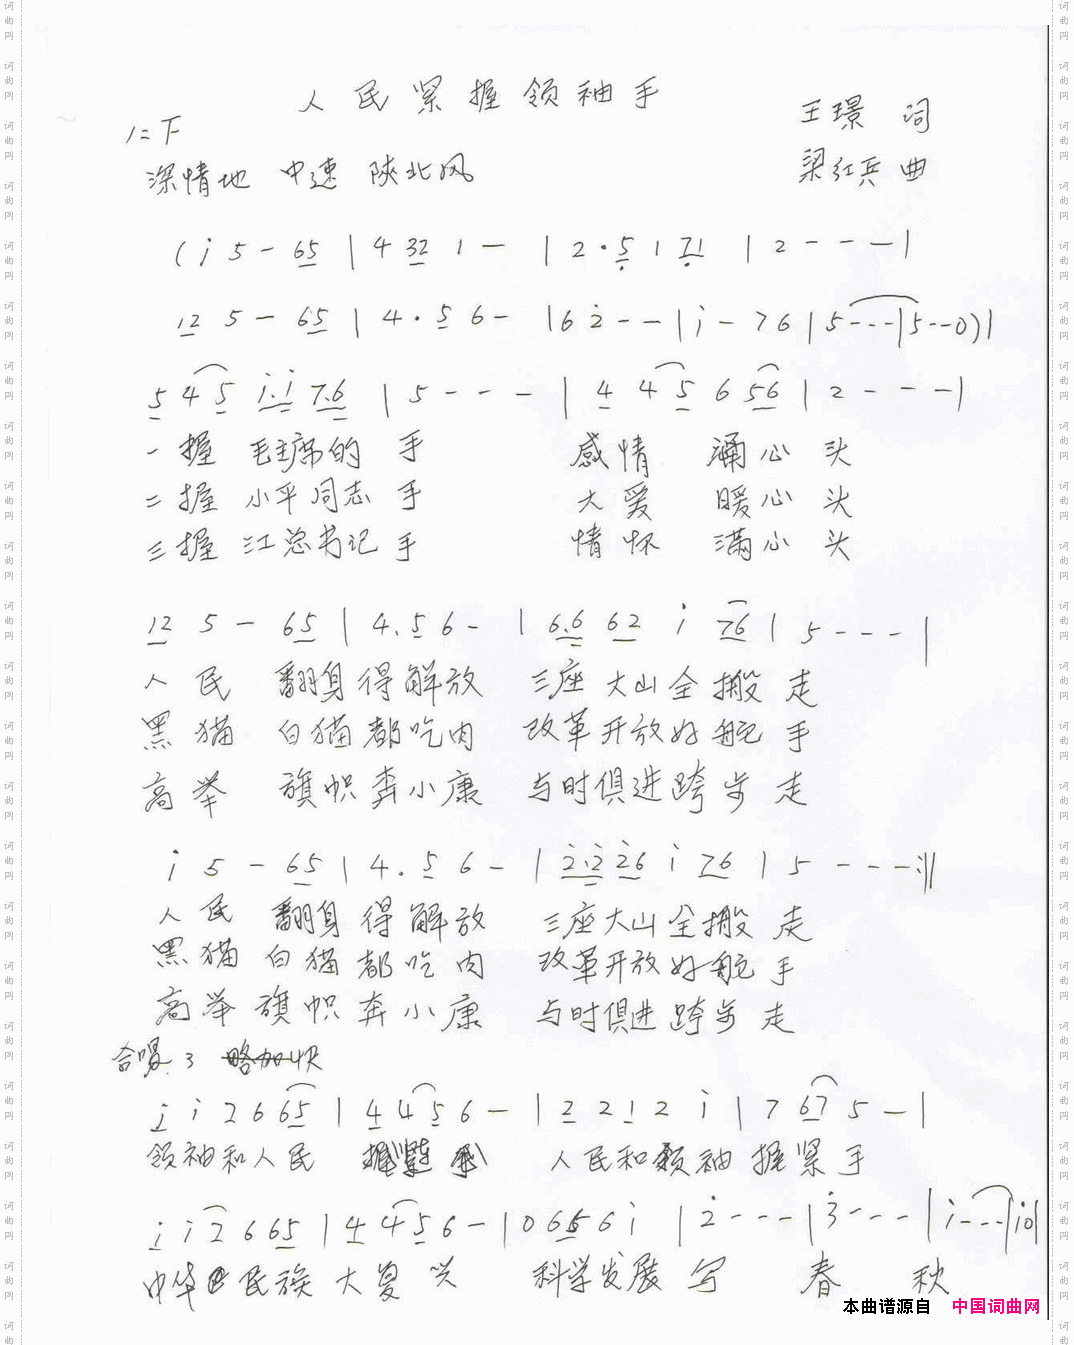 人民紧握领袖手
王璟 词
1=F
深情地 中速 陕北风
梁红兵 曲
(i 5 - 65 | 4 32 1 - | 2 · 5 1 71 | 2 - - - |
12 5 - 65 | 4 · 5 6 - | 6 2 - - | i - 7 6 | 5 - - - | 5 - - 0) |
5 4 5 i·i 7·6 | 5 - - - | 4 4 5 6 56 | 2 - - - |
一握 毛主席的 手 感情 涌心头
二握 小平同志 手 大爱 暖心头
三握 江总书记 手 情怀 满心头
12 5 - 65 | 4 · 5 6 - | 6·6 62 i 76 | 5 - - - |
人民 翻身得解放 三座大山全搬走
黑猫 白猫都吃肉 改革开放好舵手
高举 旗帜奔小康 与时俱进跨步走
i 5 - 65 | 4 · 5 6 - | 2·2 26 i 76 | 5 - - - :||
人民 翻身得解放 三座大山全搬走
黑猫 白猫都吃肉 改革开放好舵手
高举 旗帜奔小康 与时俱进跨步走
合唱: 3 略加快
i i 2 6 65 | 4 4 5 6 - | 2 2 1 2 i | 7 67 5 - |
领袖和人民 人民和领袖 握紧手
i i 2 6 65 | 4 4 5 6 - | 0 6 5 6 i | 2 - - - | 3 - - - | i - - - | i0 |
中华民族大复兴 科学发展 写 春 秋
本曲谱源自 中国词曲网